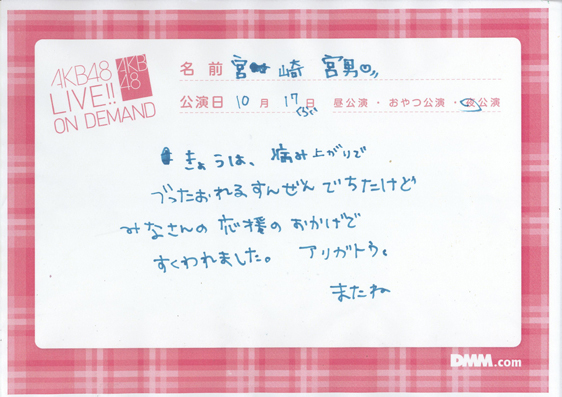 AKB48
LIVE!!
ON DEMAND
AKB
48
名前 宮崎 宮男
公演日 10月 17日 昼公演・おやつ公演・夜公演
くらい
きょうは、病み上がりで
ぶったおれるすんぜんでちたけど
みなさんの応援のおかげで
すくわれました。 アリガトウ。
またね
DMM.com